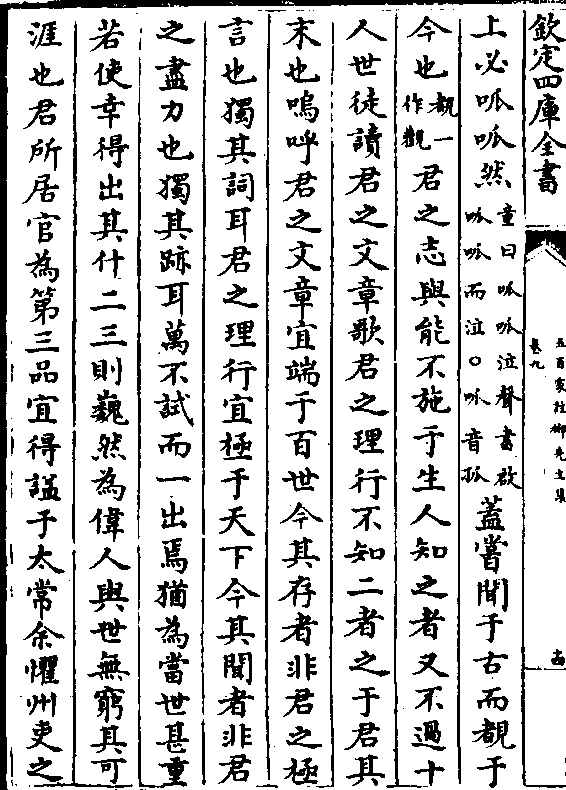 欽定四庫全書
五百家註柳先生集
卷九
古
上必呱呱然童曰呱呱泣聲書啟呱呱而泣○呱音孤蓋嘗聞于古而覩于
今也覩一作觀君之志與能不施于生人知之者又不過十
人世徒讀君之文章歌君之理行不知二者之于君其
末也嗚呼君之文章宜端于百世今其存者非君之極
言也獨其詞耳君之理行宜極于天下今其聞者非君
之盡力也獨其跡耳萬不試而一出焉猶為當世甚重
若使幸得出其什二三則巍然為偉人與世無窮其可
涯也君所居官為第三品宜得諡于太常余懼州吏之